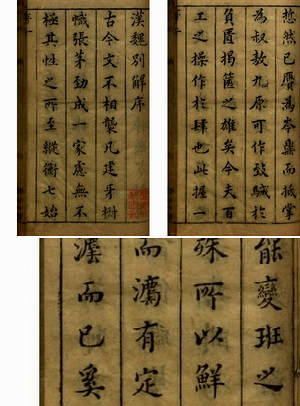 漢魏别解序
古今文不相襲凡建牙樹
幟張茅勁成一家慮無不
極其性之所至縱衡七始
然已贗為岑鼎而抵掌
為叔敖九原可作於
負匱揭篋之雄矣今夫百
工之操作於肆也此握一
能變班之
殊所以鮮
而有定
而已奚